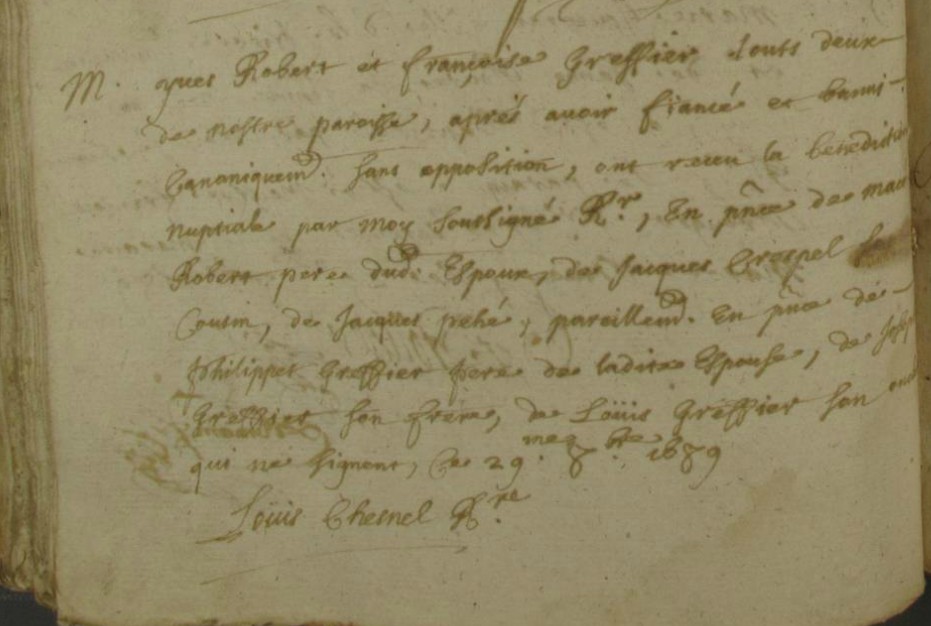 M. ques Robert et françoise Greffier touts deux
de nostre paroisse, aprés avoir fiancé et banni
Canoniquemt. sans opposition, ont receu la benedicti
nuptiale par moy soussigné Rr, En pnce de
Robert pere dud. Espoux, de Jacques Crespel
Cousin, de Jacques pehé, pareillemt. En pnce de
philippes Greffier pere de ladite Espouse, de
Greffier son frere, de Loüis Greffier son
qui ne signent, Ce 29.me 8.bre 1679
Loüis Chesnel R.re